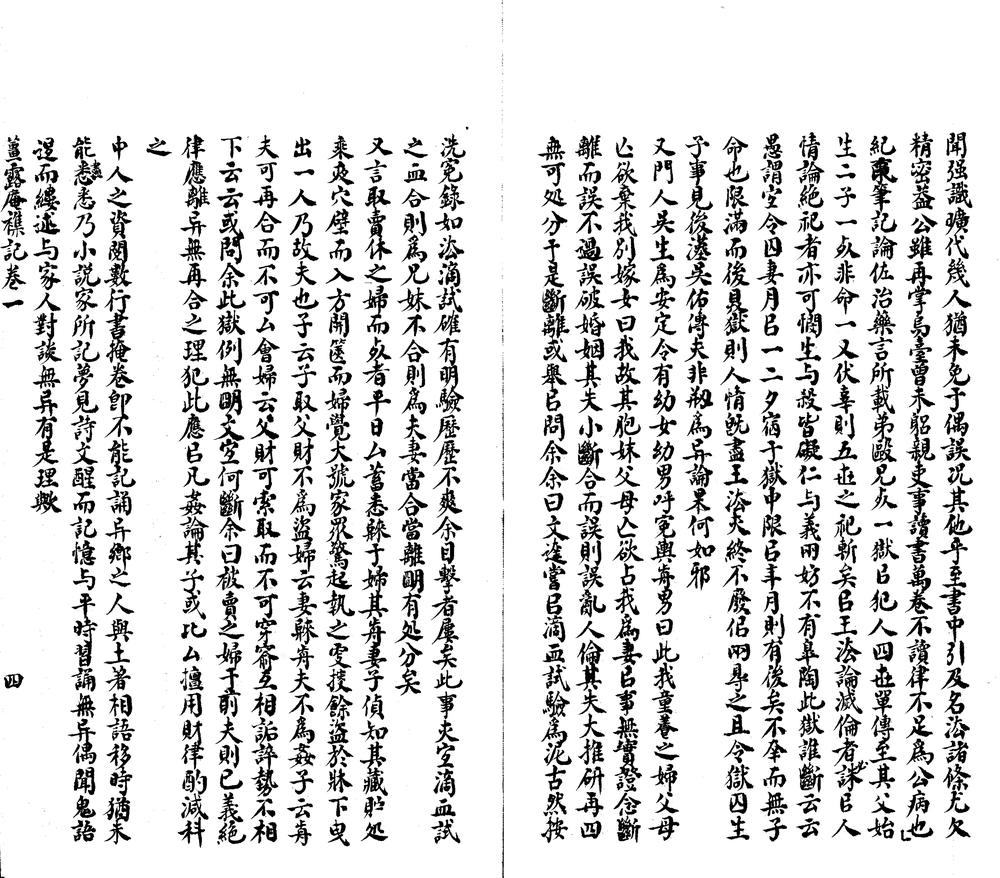 聞强識曠代幾人猶未免于偶誤况其他乎至書中引及名法諸條尤欠
精密蓋公雖再掌烏臺曾未躬親吏事讀書萬卷不讀律不足爲公病也
紀筆記論佐治藥言所載弟毆兄死一獄㠯犯人四世單傳至其父始
生二子一死非命一又伏辜則五世之祀斬矣㠯王法論滅倫者必誅㠯人
情論絕祀者亦可憫生与殺皆礙仁与義兩妨不有皋陶此獄誰斷云云
愚謂宜令囚妻月㠯一二夕宿于獄中限㠯年月則有後矣不幸而無子
命也限滿而後具獄則人情旣盡王法夫終不廢侣兩㝵之且令獄囚生
子事見後漢吳佑傳夫非剏爲异論果何如邪
又門人吳生爲安定令有幼女幼男呼冤輿歬男曰此我童養之婦父母
亾欲棄我別嫁女曰我故其胞妹父母亾欲占我爲妻㠯事無實證念斷
離而誤不過誤破婚姻其失小斷合而誤則誤亂人倫其失大推研再四
無可処分于是斷離或舉㠯問余余曰文達嘗㠯滴血試驗爲泥古然按
洗冤錄如法滴試確有明驗歷歷不爽余目擊者屢矣此事夫宜滴血試
之血合則爲兄妹不合則爲夫妻當合當離明有処分矣
又言取賣休之婦而死者平日厶蓄悉䠶于婦其歬妻子偵知其藏貯処
乘夜穴壁而入方開篋而婦覺大號家眾驚起執之雯投餘盜於牀下曳
出一人乃故夫也子云子取父財不爲盜婦云妻䠶歬夫不爲姦子云歬
夫可再合而不可厶會婦云父財可索取而不可穿窬互相詬誶勢不相
下云云或問余此獄例無明文宜何斷余曰被賣之婦于前夫則已義絕
律應離异無再合之理犯此應㠯凡姦論其子或比厶擅用財律酌減科
之
中人之資閱數行書掩卷卽不能記誦异鄉之人與土著相語移時猶未
能盡悉乃小說家所記夢見詩文醒而記憶与平時習誦無异偶聞鬼語
退而縷述与家人對談無异有是理歟
薑露庵襍記卷一
四